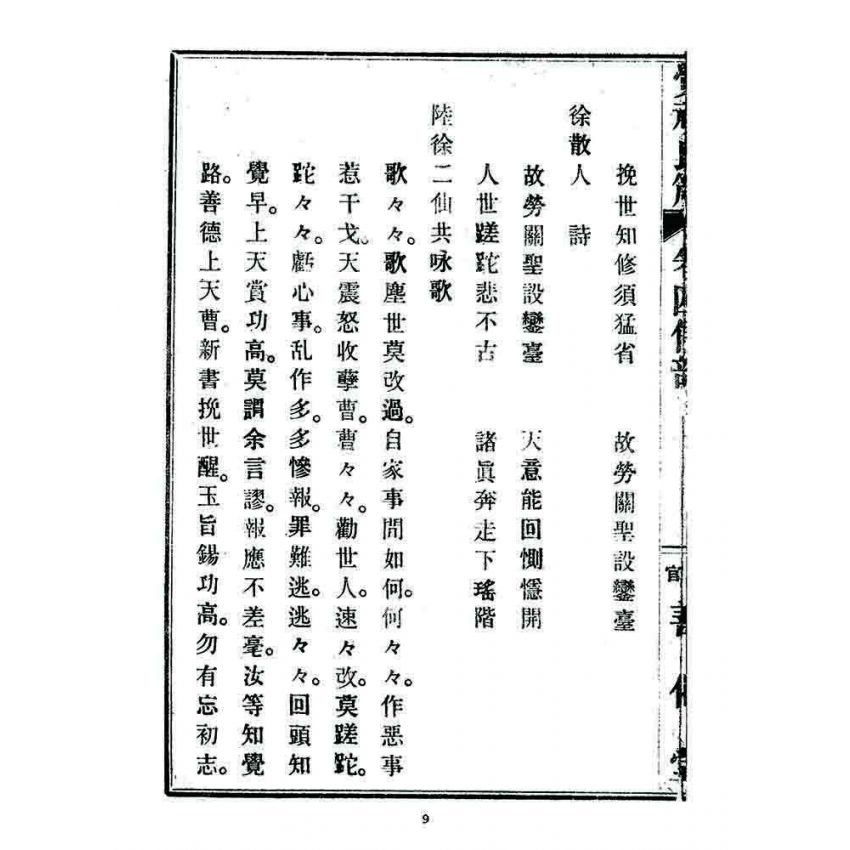 挽世知修須猛省　故勞關聖設鑾臺
徐散人　詩
故勞關聖設鑾臺　天意能回惻隱開
人世蹉跎悲不古　諸眞奔走下瑤階
陸徐二仙共咏歌
歌々々。歌塵世莫改過。自家事問如何。何々々。作惡事
惹干戈。天震怒收孽曹。曹々々。勸世人。速々改。莫蹉跎。
跎々々。虧心事。乱作多。多慘報。罪難逃。逃々々。回頭知
覺早。上天賞功高。莫謂余言謬。報應不差毫。汝等知覺
路。善德上天曹。新書挽世醒。玉旨錫功高。勿有忘初志。
9